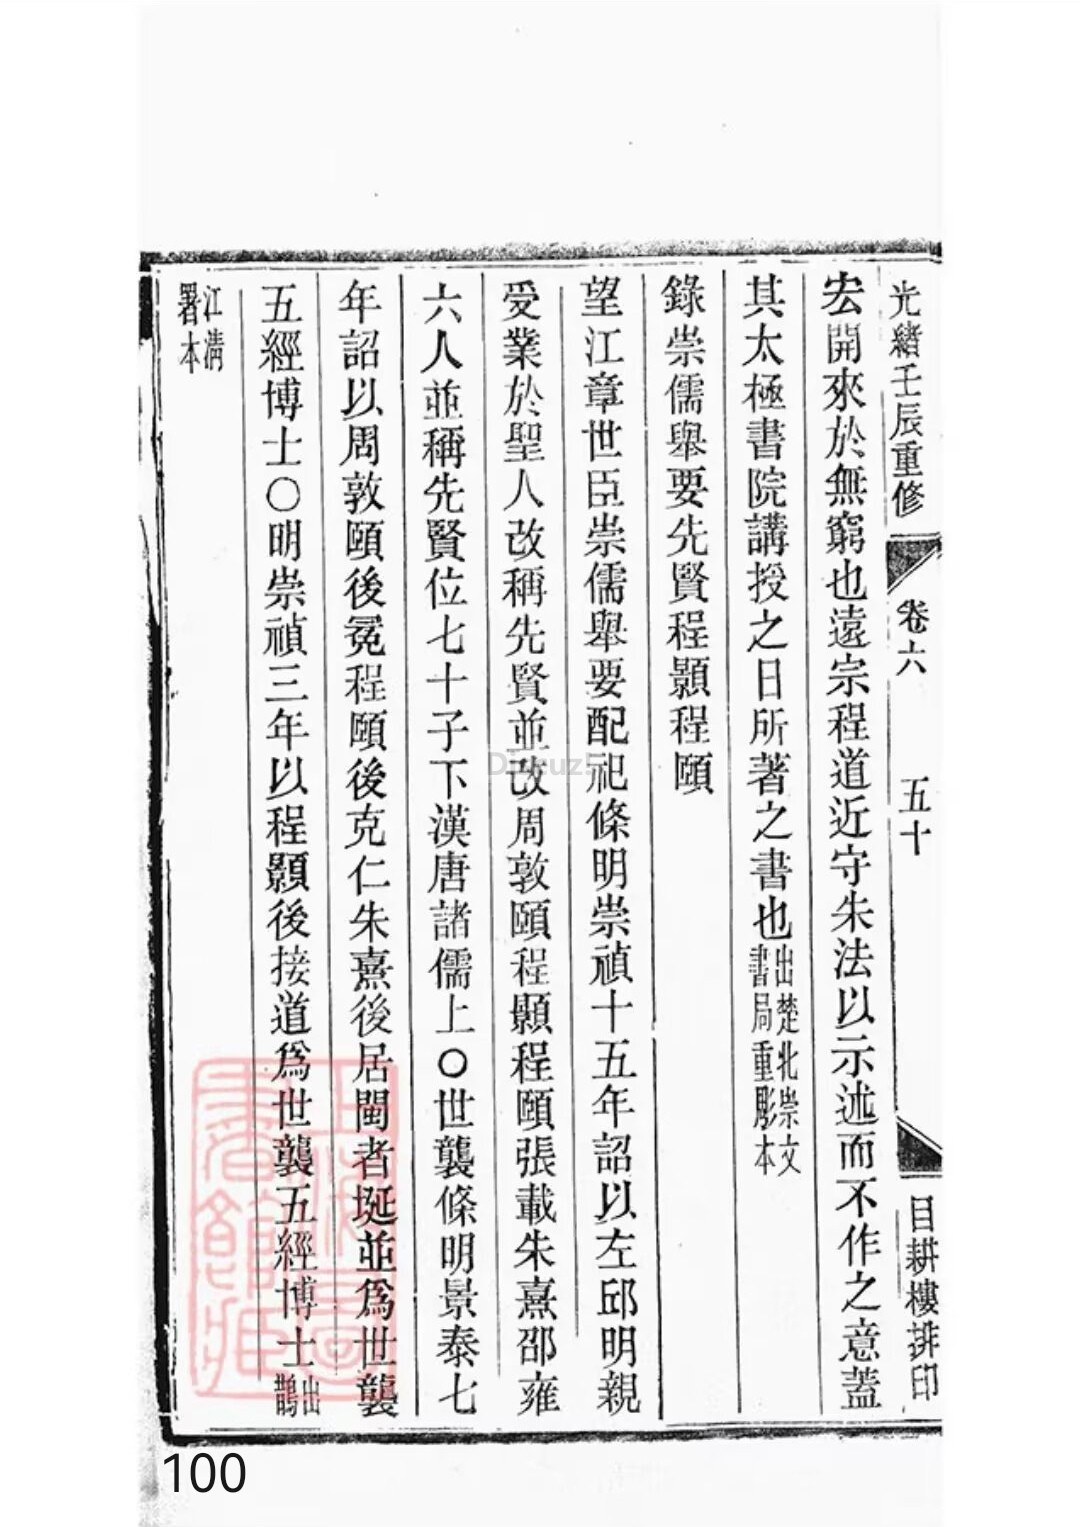 光緒壬辰重修
卷六
五十
目耕樓排印
宏開來於無窮也遠宗程道近守朱法以示述而不作之意蓋
其太極書院講授之日所著之書也出楚北崇文書局重彫本
錄崇儒舉要先賢程顥程頤
望江章世臣崇儒舉要配祀條明崇禎十五年詔以左邱明親
受業於聖人改稱先賢並改周敦頤程顥程頤張載朱熹邵雍
六人並稱先賢位七十子下漢唐諸儒上○世襲條明景泰七
年詔以周敦頤後冕程頤後克仁朱熹後居閩者埏並爲世襲
五經博士○明崇禎三年以程顥後接道爲世襲五經博士出鵲
江淸署本
100